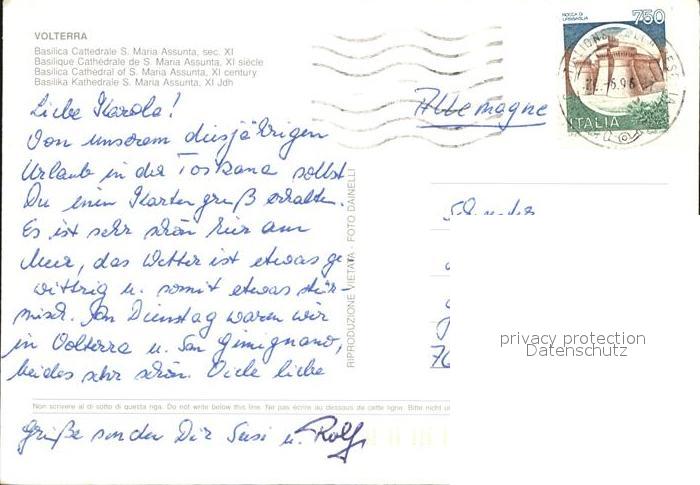 VOLTERRA
Basilica Cattedrale S. Maria Assunta, sec. XI
Basilique Cathédrale de S. Maria Assunta, XI siècle
Basilica Cathedral of S. Maria Assunta, XI century
Basilika Kathedrale S. Maria Assunta, XI Jdh
ROCCA DI URBISAGLIA
750
ITALIA
Allemagne
Liebe Karola!
Von unserem diesjährigen
Urlaub in der Toskana sollst
Du einen Kartengruß erhalten.
Es ist sehr schön hier am
Meer, das Wetter ist etwas ge-
wittrig u. somit etwas stür-
misch. Am Dienstag waren wir
in Volterra u. San Gimignano,
beides sehr schön. Viele liebe
Grüße senden Dir Susi u. Rolf
RIPRODUZIONE VIETATA - FOTO DAINELLI
Non scrivere al di sotto di questa riga. Do not write below this line. Ne pas écrire au dessous de cette ligne. Bitte nicht u
privacy protection
Datenschutz